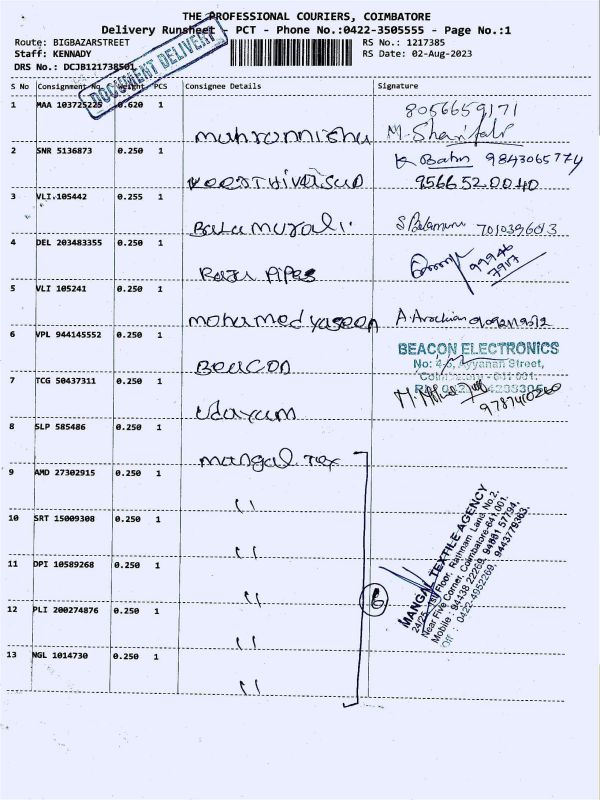 THE PROFESSIONAL COURIERS, COIMBATORE
Delivery Runsheet - PCT - Phone No.:0422-3505555 - Page No.:1
Route: BIGBAZARSTREET RS No.: 1217385
Staff: KENNADY RS Date: 02-Aug-2023
DRS No.: DCJB121738501
DOCUMENT DELIVERY
S No Consignment No. Weight PCS Consignee Details Signature
1 MAA 103725225 0.620 1
8056659171
M. Sharifah
2 SNR 5136873 0.250 1
9843065774
9566520040
3 VLI.105442 0.255 1
Balamurali. 7010396013
4 DEL 203483355 0.250 1
Raja Pipes 99946
5 VLI 105241 0.250 1
mohamed yaseen
6 VPL 944145552 0.250 1
Beacon
BEACON ELECTRONICS
Ayyanan Street,
7 TCG 50437311 0.250 1
Udayam
8 SLP 585486 0.250 1
mangal Tex
9 AMD 27302915 0.250 1
"
10 SRT 15009308 0.250 1
"
11 DPI 10589268 0.250 1
"
6
12 PLI 200274876 0.250 1
"
13 NGL 1014730 0.250 1
"
MANGAL TEXTILE AGENCY
24/25, 1st Floor, Rathnam Lane No.2,
Near Five Corner, Coimbatore-641 001.
Mobile : 94438 22269, 94881 57794,
Off : 0422-4952269, 9443779363.